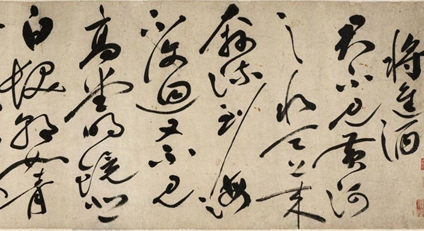 將進酒
君不見黃河
之水天上來
奔流到海
不復迴又不見
高堂明鏡悲
白髮朝如青